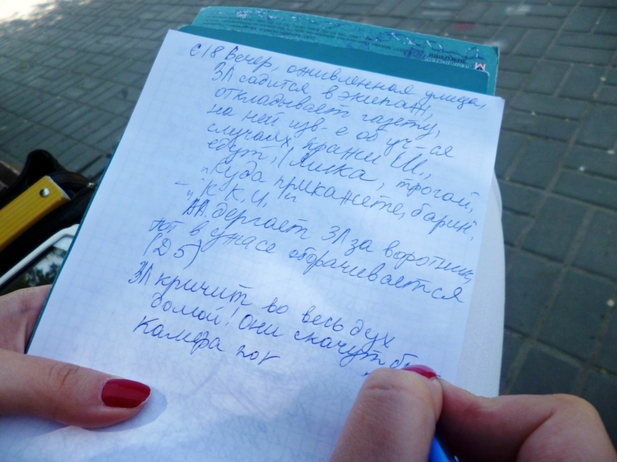 С18 Вечер, оживлённая улица,
ЗЛ садится в экипаж,
откладывает газету,
на ней изв-е об уч-ся
случаях кражи Ш.,
едут, Яшка, трогай,
"Куда прикажете, барин,
- "К К.И."
АА дергает ЗЛ за воротник,
тот в ужасе оборачивается
(Д5)
ЗЛ кричит во весь дух
домой! Они скачут
камера